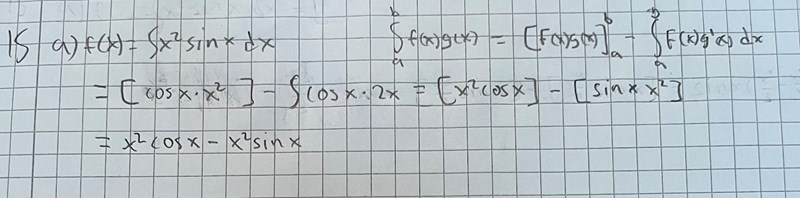 15 a) f(x) = ∫x² sin x dx    ∫ₐᵇ f(x)g(x) = [F(x)g(x)]ₐᵇ - ∫ₐᵇ F(x)g'(x) dx
= [cos x · x²] - ∫cos x · 2x = [x² cos x] - [sin x x²]
= x² cos x - x² sin x